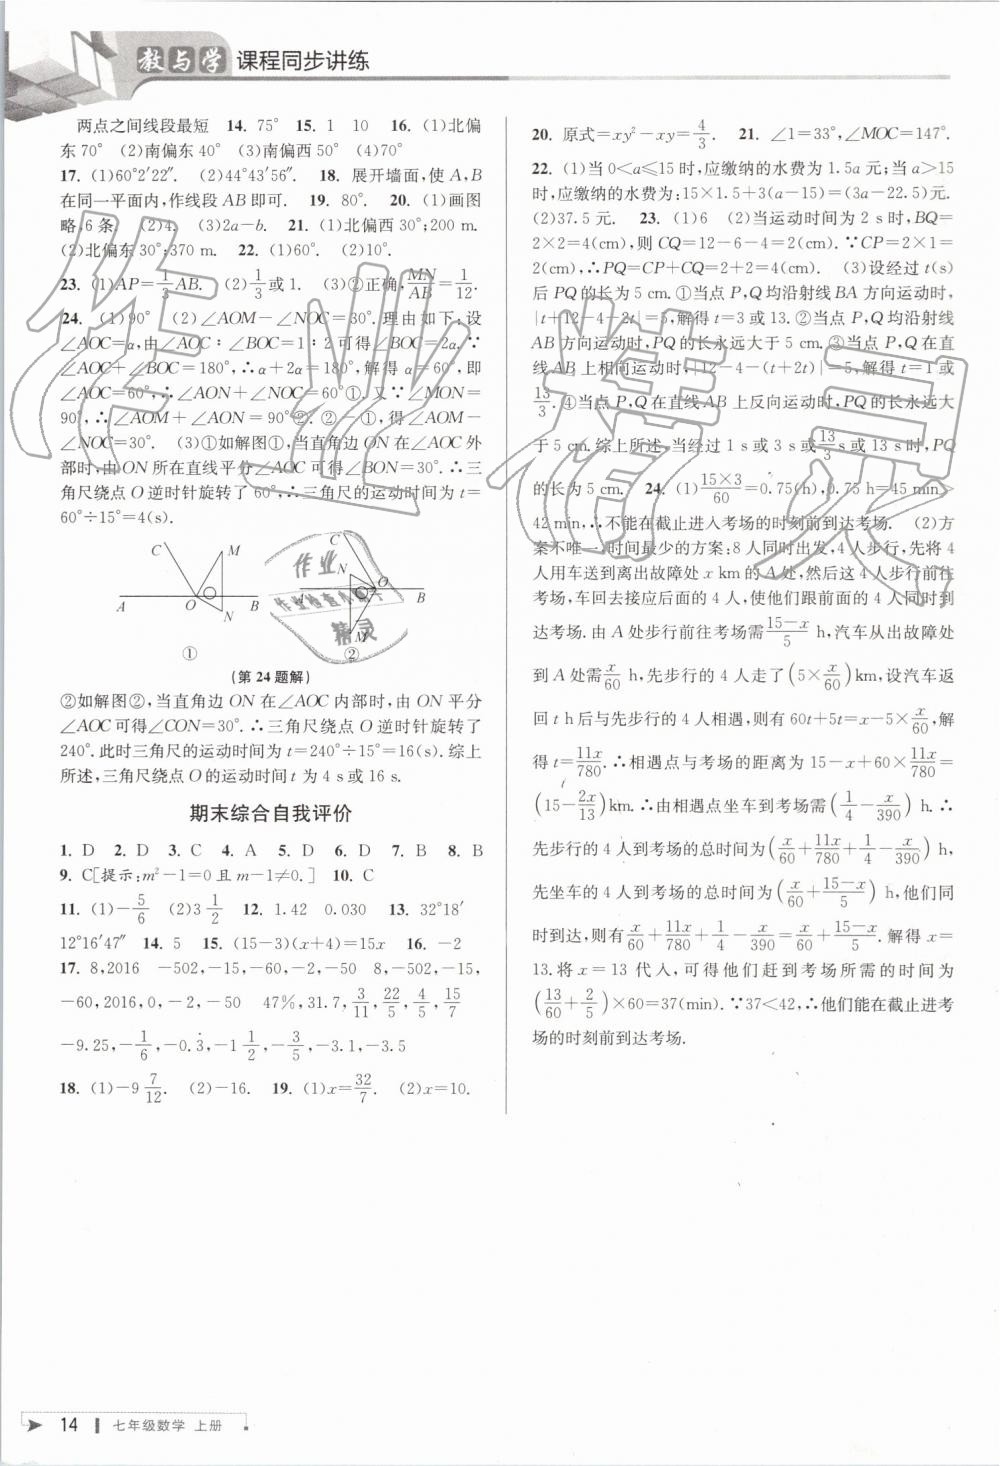 教与学 课程同步讲练
两点之间线段最短 14. 75° 15. 1 10 16. (1)北偏
东70° (2)南偏东40° (3)南偏西50° (4)70°
17. (1)60°2′22″. (2)44°43′56″. 18. 展开墙面,使A,B
在同一平面内,作线段AB即可. 19. 80°. 20. (1)画图
略,6条. (2)4. (3)2a-b. 21. (1)北偏西30°;200 m.
(2)北偏东30°;370 m. 22. (1)60°. (2)10°.
23. (1)AP=1/3 AB. (2)1/3或1. (3)②正确,MN/AB=1/12.
24. (1)90° (2)∠AOM-∠NOC=30°.理由如下:设
∠AOC=α,由∠AOC∶∠BOC=1∶2可得∠BOC=2α.∵
∠AOC+∠BOC=180°,∴α+2α=180°,解得α=60°,即
∠AOC=60°,∴∠AON+∠NOC=60°①.又∵∠MON=
90°,∴∠AOM+∠AON=90°②.②-①,得∠AOM-
∠NOC=30°. (3)①如解图①,当直角边ON在∠AOC外
部时,由ON所在直线平分∠AOC可得∠BON=30°.∴三
角尺绕点O逆时针旋转了60°,∴三角尺的运动时间为t=
60°÷15°=4(s).
C M A O N B ①
C N O A B M ②
(第24题解)
②如解图②,当直角边ON在∠AOC内部时,由ON平分
∠AOC可得∠CON=30°.∴三角尺绕点O逆时针旋转了
240°.此时三角尺的运动时间为t=240°÷15°=16(s).综上
所述,三角尺绕点O的运动时间t为4 s或16 s.
期末综合自我评价
1. D 2. D 3. C 4. A 5. D 6. D 7. B 8. B
9. C[提示:m²-1=0且m-1≠0.] 10. C
11. (1)-5/6 (2)3 1/2 12. 1.42 0.030 13. 32°18′
12°16′47″ 14. 5 15. (15-3)(x+4)=15x 16. -2
17. 8,2016 -502,-15,-60,-2,-50 8,-502,-15,
-60,2016,0,-2,-50 47%,31.7,3/11,22/5,4/5,15/7
-9.25,-1/6,-0.3̇,-1 1/2,-3/5,-3.1,-3.5
18. (1)-9 7/12. (2)-16. 19. (1)x=32/7. (2)x=10.
20. 原式=xy²-xy=4/3. 21. ∠1=33°,∠MOC=147°.
22. (1)当0<a≤15时,应缴纳的水费为1.5a元;当a>15
时,应缴纳的水费为:15×1.5+3(a-15)=(3a-22.5)元.
(2)37.5元. 23. (1)6 (2)当运动时间为2 s时,BQ=
2×2=4(cm),则CQ=12-6-4=2(cm).∵CP=2×1=
2(cm),∴PQ=CP+CQ=2+2=4(cm). (3)设经过t(s)
后PQ的长为5 cm.①当点P,Q均沿射线BA方向运动时,
|t+12-4-2t|=5,解得t=3或13.②当点P,Q均沿射线
AB方向运动时,PQ的长永远大于5 cm.③当点P,Q在直
线AB上相向运动时,|12-4-(t+2t)|=5,解得t=1或
13/3.④当点P,Q在直线AB上反向运动时,PQ的长永远大
于5 cm.综上所述,当经过1 s或3 s或13/3 s或13 s时,PQ
的长为5 cm. 24. (1)15×3/60=0.75(h),0.75 h=45 min>
42 min,∴不能在截止进入考场的时刻前到达考场. (2)方
案不唯一,时间最少的方案:8人同时出发,4人步行,先将4
人用车送到离出故障处x km的A处,然后这4人步行前往
考场,车回去接应后面的4人,使他们跟前面的4人同时到
达考场.由A处步行前往考场需(15-x)/5 h,汽车从出故障处
到A处需x/60 h,先步行的4人走了(5×x/60)km,设汽车返
回t h后与先步行的4人相遇,则有60t+5t=x-5×x/60,解
得t=11x/780.∴相遇点与考场的距离为15-x+60×11x/780=
(15-2x/13)km.∴由相遇点坐车到考场需(1/4-x/390) h.∴
先步行的4人到考场的总时间为(x/60+11x/780+1/4-x/390) h,
先坐车的4人到考场的总时间为(x/60+(15-x)/5) h,他们同
时到达,则有x/60+11x/780+1/4-x/390=x/60+(15-x)/5.解得x=
13.将x=13代入,可得他们赶到考场所需的时间为
(13/60+2/5)×60=37(min).∵37<42,∴他们能在截止进考
场的时刻前到达考场.
作业精灵
作业
作业检查小助手
精灵
14 七年级数学 上册